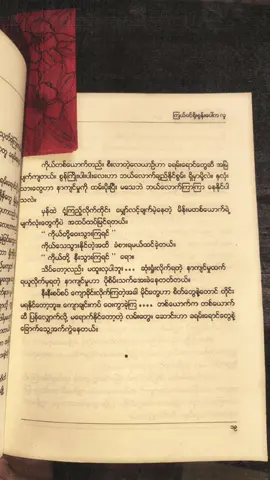 ကြယ်ဝင်ရိုးစွန်းပေါ်က လူ
ကိုယ်တစ်ယောက်တည်း စီးလာတဲ့လေယာဉ်ဟာ ခရမ်းရောင်တွေဆီ အမြဲ
ပျက်ကျတယ်။ စွန်ကြီးပါးပါးလေးဟာ ဘယ်လောက်ရှည်နိုင်စွမ်း ရှိမှာမို့လဲ။ နှလုံး
သားတွေဟာ နာကျင်မှုကို ထမ်းပိုးပြီး မသေဘဲ ဘယ်လောက်ကြာကြာ နေနိုင်ပါ
သလဲ။
မှန်ထဲ ငုံ့ကြည့်လိုက်တိုင်း မျှော်လင့်ချက်မဲ့နေတဲ့ မိန်းမတစ်ယောက်ရဲ့
မျက်လုံးတွေကိုပဲ အထပ်ထပ်မြင်ရတယ်။
" ကိုယ်တို့ဝေးသွားကြရင် "
ကိုယ်သေသွားနိုင်တဲ့အထိ ခံစားရမယ်ထင်ခဲ့တယ်။
" ကိုယ်တို့ နီးသွားကြရင် " ရော။
သိပ်တော့လည်း မထူးလှပါဘူး။ ... ဆုံးရှုံးလိုက်ရတဲ့ နာကျင်မှုထက်
ရယူလိုက်မှုရတဲ့ နာကျင်မှုဟာ ပိုစိမ်းသက်အေးခဲနေတတ်တယ်။
နီးနီးစပ်စပ် ကျောခိုင်းလိုက်ကြတဲ့အခါ မိုင်တွေဟာ စိတ်တွေနဲ့တောင် တိုင်း
မရနိုင်တော့ဘူး။ ကျောချင်းကပ် ဝေးကွာခဲ့ကြ .... တစ်ယောက်က တစ်ယောက်
ဆီ ပြန်လျှောက်လို့ မရောက်နိုင်တော့တဲ့ လမ်းတွေ။ ဆောင်းဟာ ခရမ်းရောင်တွေနဲ့
ခြောက်သွေ့အက်ကွဲနေတယ်။
၁၉